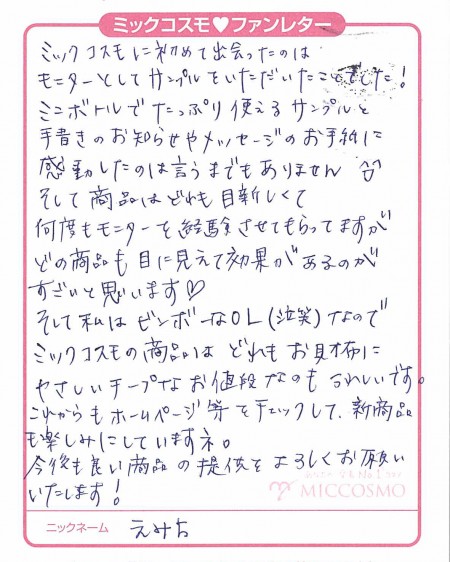 ミックコスモ♥ファンレター
ミックコスモに初めて出会ったのは
モニターとしてサンプルをいただいたことでした!
ミニボトルでたっぷり使えるサンプルと
手書きのお知らせやメッセージのお手紙に
感動したのは言うまでもありません ^^
そして商品はどれも目新しくて
何度もモニターを経験させてもらってますが
どの商品も目に見えて効果があるのが
すごいと思います♡
そして私はビンボーなOL(泣笑)なので
ミックコスモの商品は どれもお財布に
やさしいチープなお値段なのもうれしいです。
これからもホームページ等をチェックして、新商品
も楽しみにしていますネ。
今後も良い商品の提供をよろしくお願い
いたします!
MICCOSMO
ニックネーム えみち